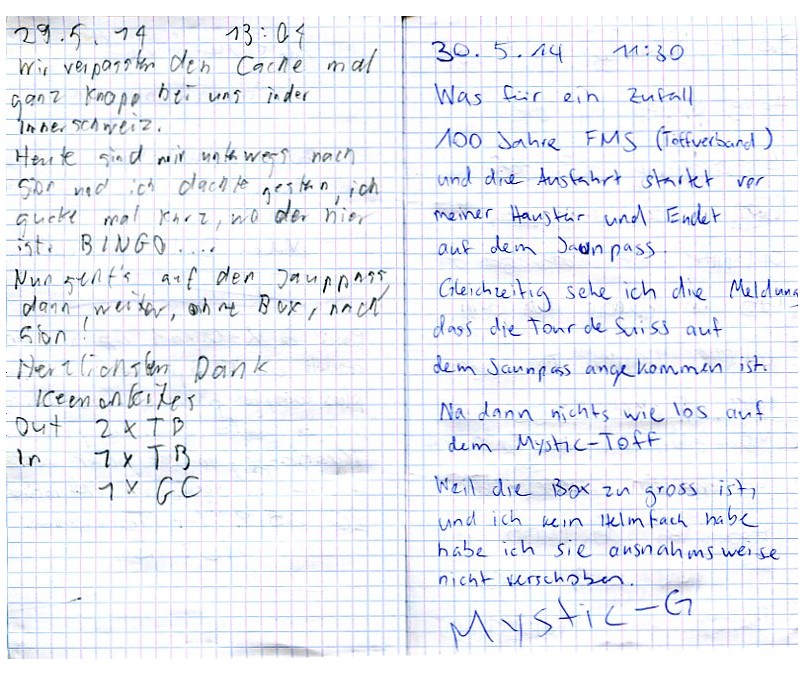 29.5.14 13:04
Wir verpassten den Cache mal
ganz knapp bei uns in der
Innerschweiz.
Heute sind wir unterwegs nach
Sion und ich dachte gestern, ich
gucke mal kurz, wo der hier
ist. BINGO....
Nun geht's auf den Jaunpass,
dann, weiter, ohne Box, nach
Sion!
Herzlichsten Dank
Out 2 x TB
In 1 x TB
1 x GC
30.5.14 11:30
Was für ein Zufall
100 Jahre FMS (Töffverband)
und die Ausfahrt startet vor
meiner Haustür und Endet
auf dem Jaunpass.
Gleichzeitig sehe ich die Meldung
dass die Tour de Suiss auf
dem Jaunpass angekommen ist.
Na dann nichts wie los auf
dem Mystic-Töff
Weil die Box zu gross ist,
und ich kein Helmfach habe
habe ich sie ausnahmsweise
nicht verschoben.
Mystic-G